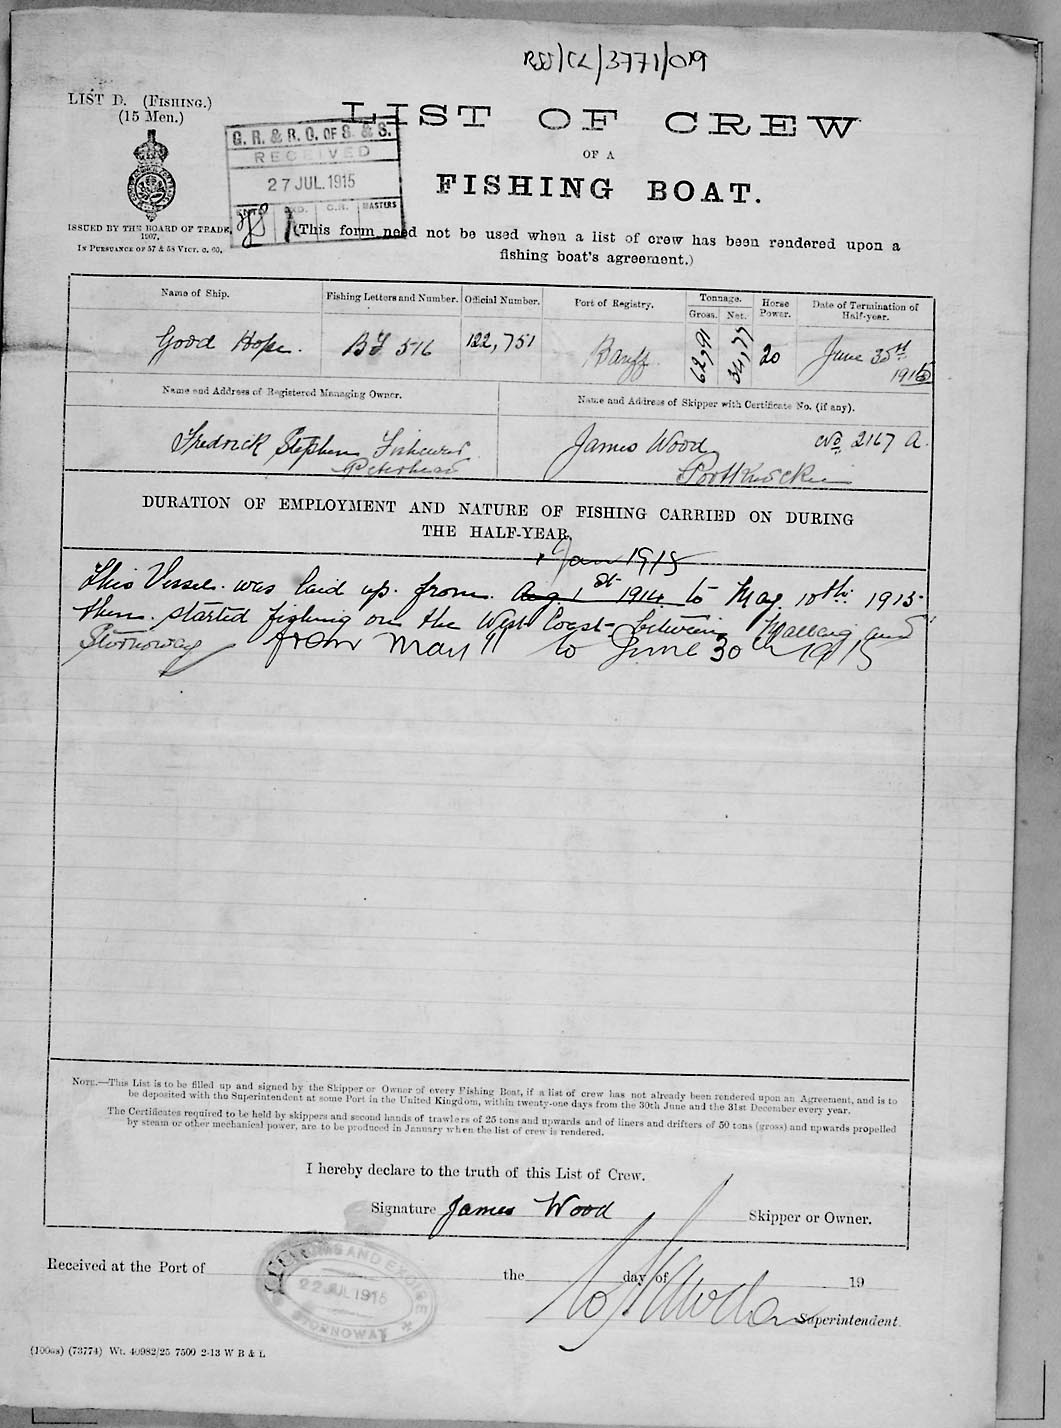 RSS/CL/3771/019
LIST D. (FISHING.)
(15 Men.)
LIST OF CREW
OF A
FISHING BOAT.
G. R. & R. O. OF S. & S.
RECEIVED
27 JUL. 1915
C.R. MASTERS
ISSUED BY THE BOARD OF TRADE,
1907.
IN PURSUANCE OF 57 & 58 VICT. C. 60.
(This form need not be used when a list of crew has been rendered upon a
fishing boat's agreement.)
Name of Ship. Fishing Letters and Number. Official Number. Port of Registry. Tonnage. Gross. Net. Horse Power. Date of Termination of Half-year.
Good Hope. BF 516 122,751 Banff. 62,91 34,77 20 June 30th 1915
Name and Address of Registered Managing Owner. Name and Address of Skipper with Certificate No. (if any).
Fredrick Stephen Fishcurer James Wood No 2167 A.
Peterhead Portknockie
DURATION OF EMPLOYMENT AND NATURE OF FISHING CARRIED ON DURING
THE HALF-YEAR.
1 Jan 1915
This Vessel. was laid up. from. Aug. 1st 1914 to May. 10th. 1915
then. started fishing on the West Coast between Mallaig and
Stornoway from May 11 to June 30th 1915
NOTE.—This List is to be filled up and signed by the Skipper or Owner of every Fishing Boat, if a list of crew has not already been rendered upon an Agreement, and is to
be deposited with the Superintendent at some Port in the United Kingdom, within twenty-one days from the 30th June and the 31st December every year.
The Certificates required to be held by skippers and second hands of trawlers of 25 tons and upwards and of liners and drifters of 50 tons (gross) and upwards propelled
by steam or other mechanical power, are to be produced in January when the list of crew is rendered.
I hereby declare to the truth of this List of Crew.
Signature James Wood Skipper or Owner.
Received at the Port of the day of 19
CUSTOMS AND EXCISE
22 JUL 1915
STORNOWAY
Superintendent.
(100as) (73774) Wt. 40982/25 7500 2-13 W B & L